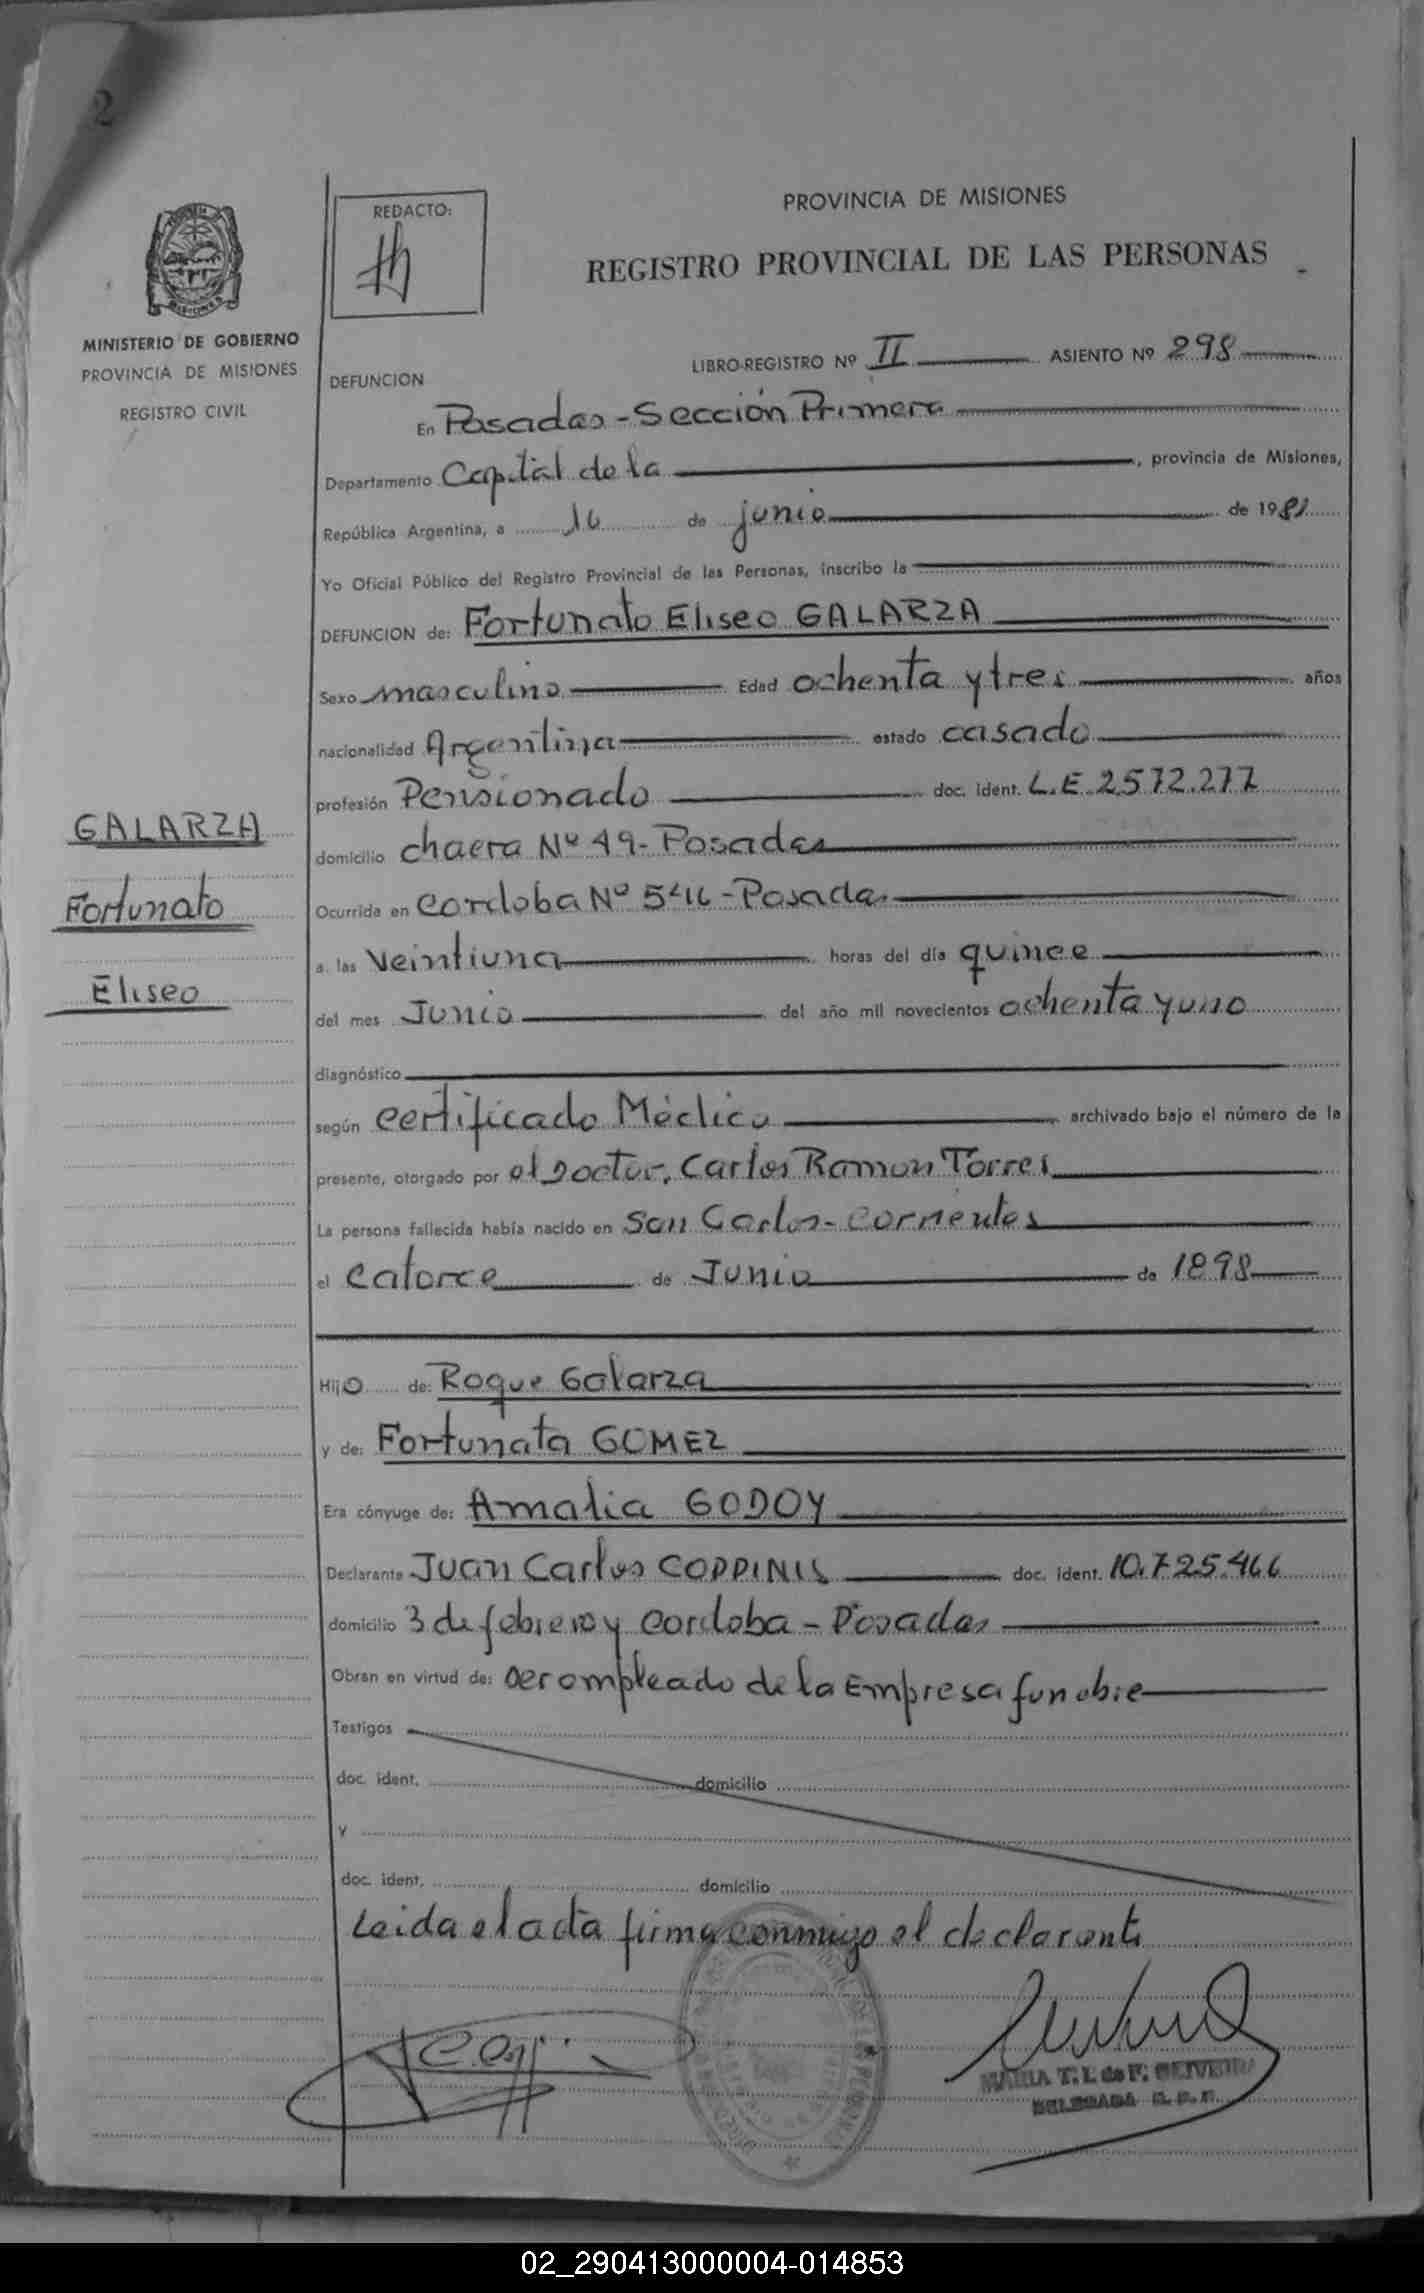 2
PROVINCIA DE MISIONES
REDACTO:
REGISTRO PROVINCIAL DE LAS PERSONAS
MINISTERIO DE GOBIERNO
PROVINCIA DE MISIONES
REGISTRO CIVIL
LIBRO-REGISTRO Nº II ASIENTO Nº 298
DEFUNCION
En Posadas - Sección Primera
Departamento Capital de la, provincia de Misiones,
República Argentina, a 16 de junio de 1981
Yo Oficial Público del Registro Provincial de las Personas, inscribo la
DEFUNCION de: Fortunato Eliseo GALARZA
Sexo masculino Edad ochenta y tres años
nacionalidad Argentina estado casado
profesión Pensionado doc. ident. L.E 2.572.277
GALARZA
domicilio chacra Nº 49 - Posadas
Fortunato
Ocurrida en cordoba Nº 546 - Posadas
a las Veintiuna horas del día quince
Eliseo
del mes Junio del año mil novecientos ochenta y uno
diagnóstico
según certificado Médico archivado bajo el número de la
presente, otorgado por el Doctor, Carlos Ramon Torres
La persona fallecida había nacido en San Carlos - Corrientes
el catorce de Junio de 1898
Hijo de: Roque Galarza
y de: Fortunata GOMEZ
Era cónyuge de: Amalia GODOY
Declarante Juan Carlos COPPINIS doc. ident. 10.725.466
domicilio 3 de febrero y cordoba - Posadas
Obran en virtud de: ser empleado de la Empresa funebre
Testigos
doc. ident. domicilio
y
doc. ident. domicilio
Leida el acta firma conmigo el declarante
MARIA T. I. de F. OLIVEIRA
DELEGADA R. P. P.
02_290413000004-014853